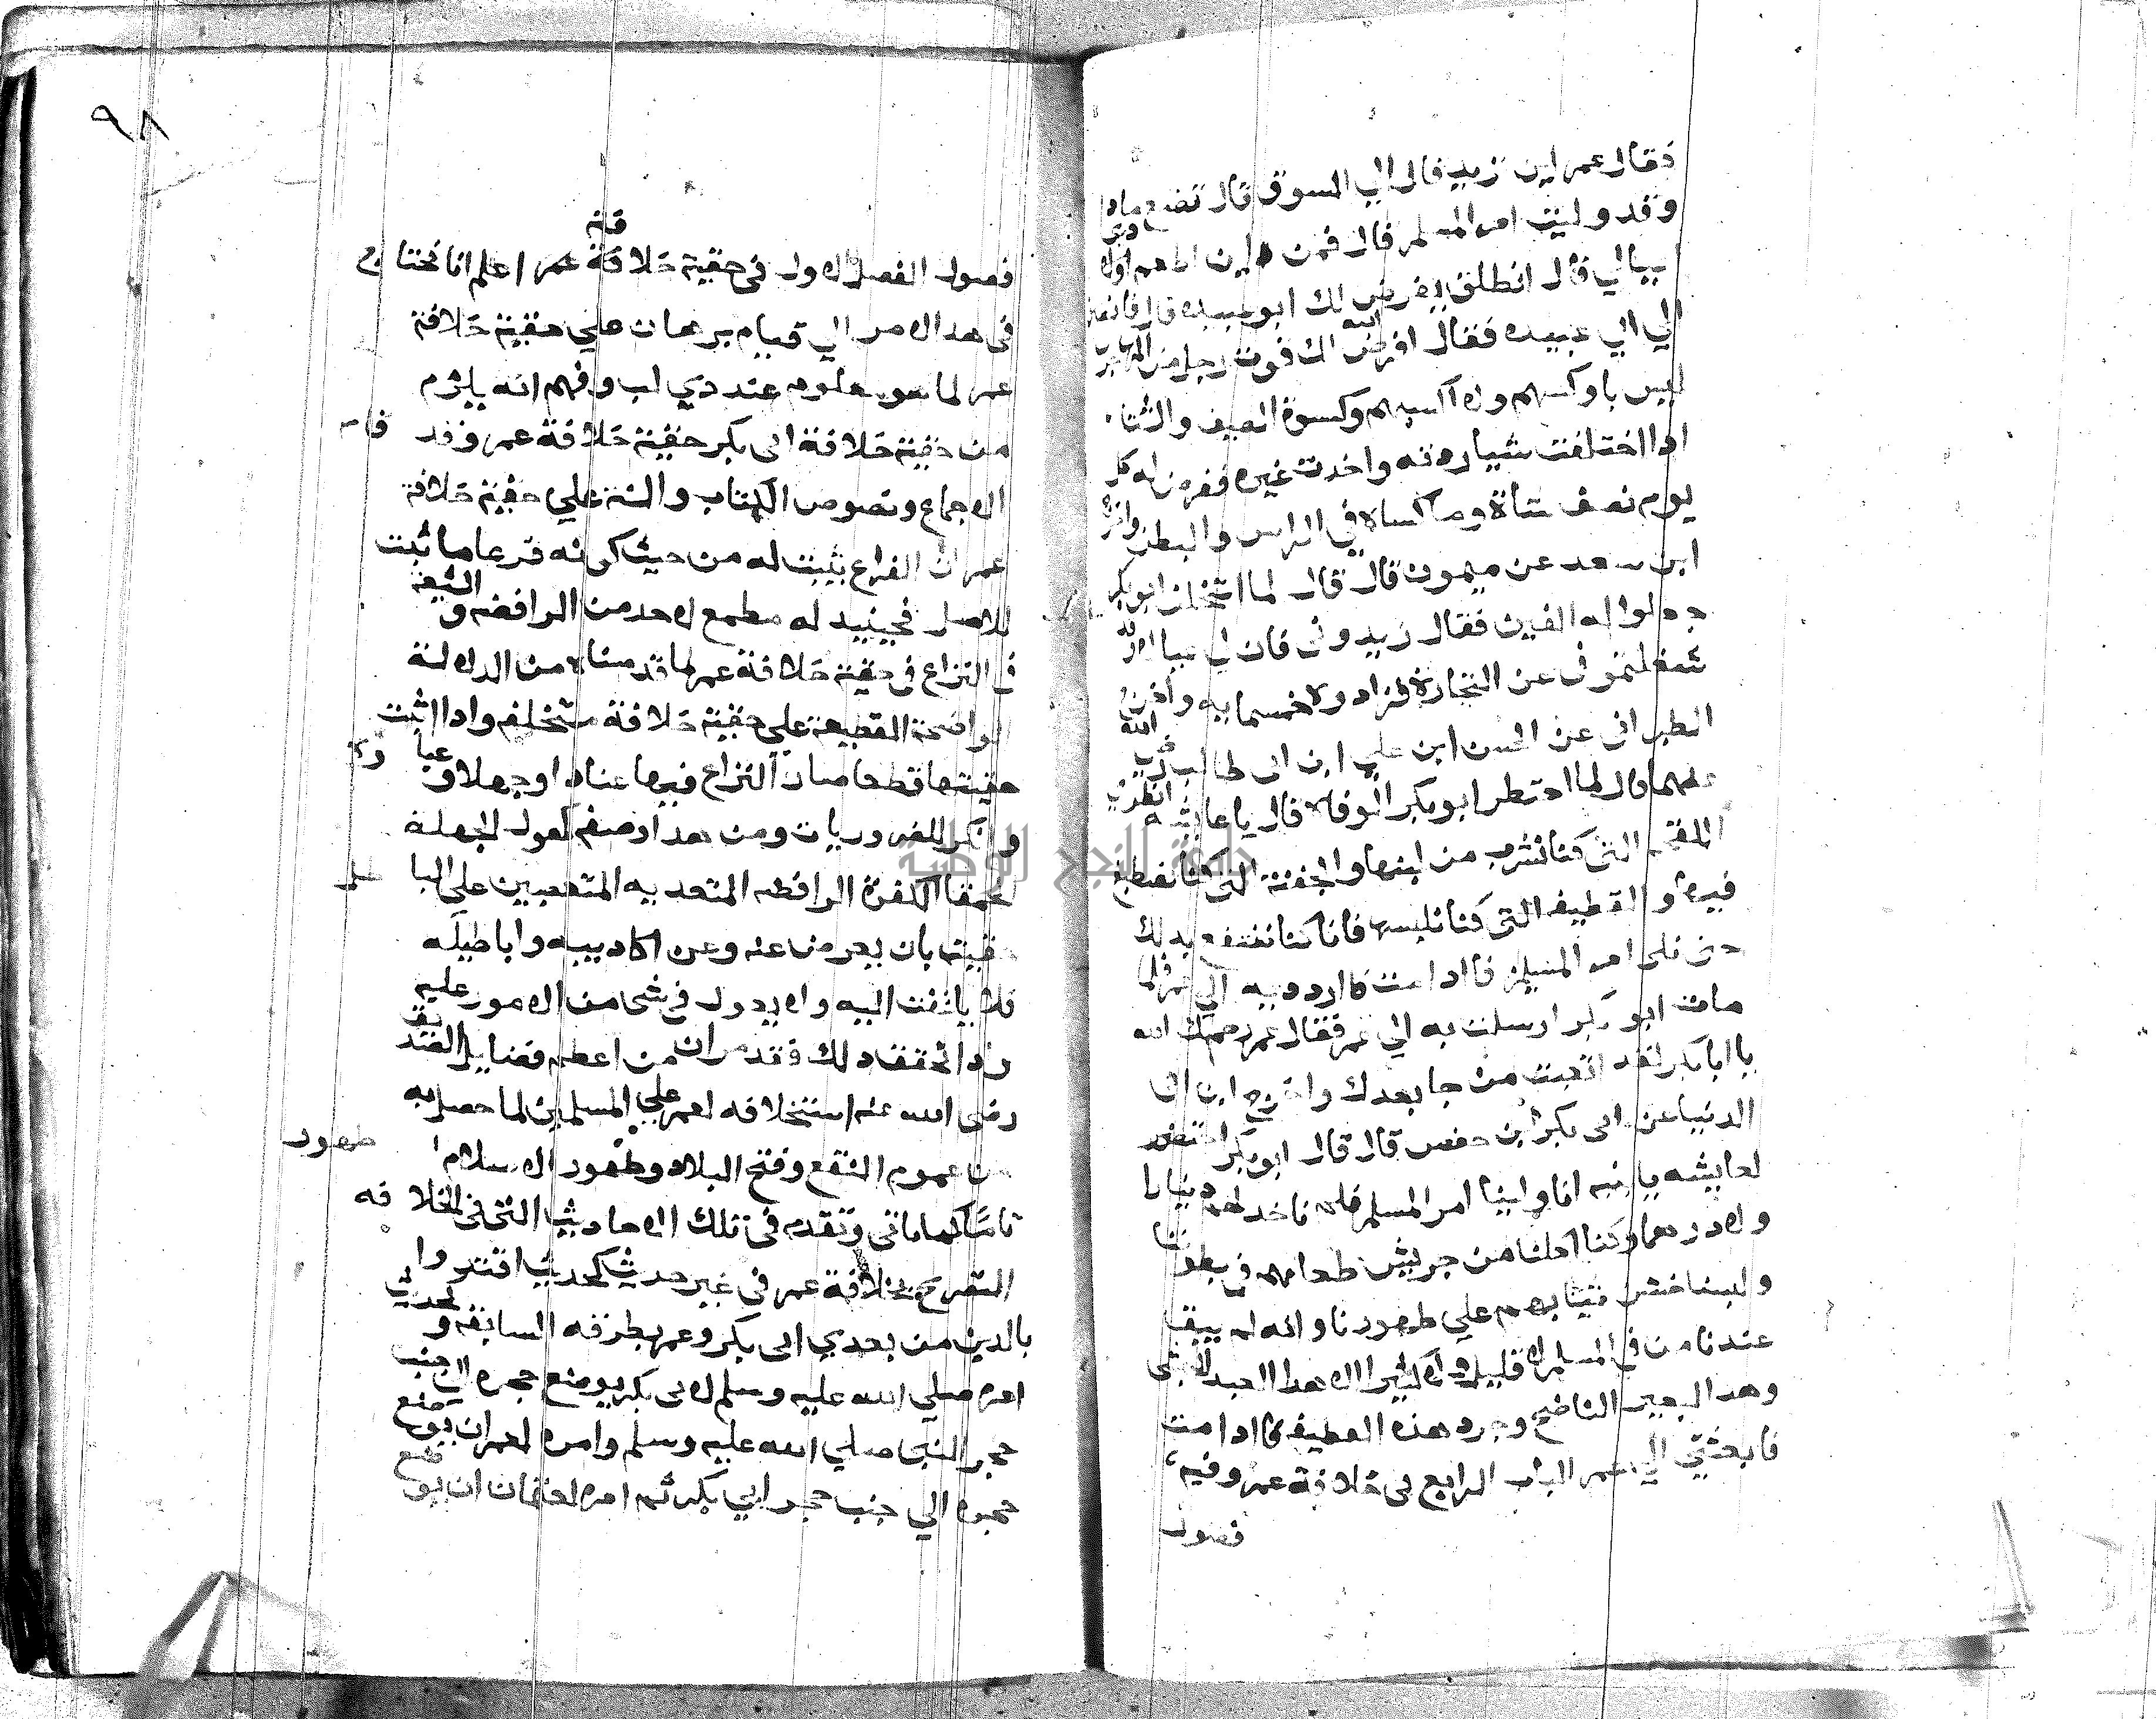 فقال عمر اين تريد قال الي السوق قال تصنع ماذا
وقد وليت امر المسلمـ قال فمن اين اطعم اولادي
عيالي قال انطلق يفرض لك ابو عبيده فانطلق
الي ابي عبيده فقال افرض لك قوت رجل من المهاجرين
ليس باوكسهم ولا اكسيهم وكسوة الصيف والشتاء
اذا اختلفت شيا رددته واخذت غيره ففرض له كل
يوم نصف شاة وما كساه في الراس والبطن واخرج
ابن سعد عن ميمون قال قال لما استخلف ابو بكر
جعلوا له الفين فقال زيدوني فان لي عيالا وقد
شغلتموني عن التجارة فزادوه خمسمايه واخرج
الطبراني عن الحسن ابن علي ابن ابي طالب رضي الله
عنهما قال لما احتضر ابو بكر الوفاة قال يا عايشه انظري
اللقحه التي كنا نشرب من لبنها والجفنة التي كنا نصطبغ
فيها والقطيفه التي كنا نلبسها فانا كنا ننتفع بذلك
حين نلي امر المسلمين فاذا مت فاردديه الي عمر فلما
مات ابو بكر ارسلت به الي عمر فقال عمر رحمك الله
يا ابا بكر لقد اتعبت من جا بعدك واخرج ابن ابي
الدنيا عن ابي بكر ابن حفص قال قال ابو بكر لما احتضر
لعايشه يا بنيه انا ولينا امر المسلمـ فلم ناخذ لهم دينارا
ولا درهما ولكنا اكلنا من جريش طعامهم في بطوننا
ولبسنا خشن ثيابهم علي ظهورنا وانه لم يبق
عندنا من في المسلمـ لا قليل ولا كثير الا هذا العبد الحبشي
وهذا البعير الناضح وجرد هذه القطيفه فاذا مت
فابعثي الي عمر الباب الرابع في خلافة عمر وفيه
فصول
٩٨
فصول الفصل الاول في حقية خلافة عمر اعلم انا نحتاج
في هدا الامر الي قيام برهان علي حقية خلافة
عمر لما هو معلوم عند ذي لب وفهم انه يلزم
من حقية خلافة ابي بكر حقية خلافة عمر وقد قام
الاجماع ونصوص الكتاب والسنة علي حقية خلافة
عمر لان الفرع يثبت له من حيث كونه فرعا ما ثبت
للاصل فحينيد له مطمع لاحد من الرافضه والشيعة
في النزاع في حقية خلافة عمر لما قدمناه من الدلالة
الواضحة القطعية علي حقية خلافة مستخلفه واذا اثبت
حقيتها قطعا صار النزاع فيها عنادا وجهلا وغيا
وانكار للضروريات ومن هدا وصفه كهول الجهلة
الحمقا الكفرة الرافضه المتعديه المتعصبين علي الباطل
حقيته بان يعرض عنه وعن اكاديبه واباطيله
فلا يلتفت اليه ولا يعول في شي من الامور عليه
واذا تحقق دلك فقد مر ان من اعظم فضايل الصديق
رضي الله عنه استخلافه لعمر علي المسلمين لما حصل به
من عموم النفع وفتح البلاد وظهور الاسلام ظهورا
تاما كما ياتي وتقدم في تلك الاحاديث التي في الخلافه
التصريح بخلافة عمر في غير حديث كحديث اقتدوا
بالدين من بعدي ابي بكر وعمر بطرقه السابقه وكحديث
امره صلي الله عليه وسلم لابي بكر يوضع حجره الي جنب
حجر النبي صلي الله عليه وسلم وامره لعمر ان يوضع
حجره الي جنب حجر ابي بكر ثم امره لعثمان ان يوضع